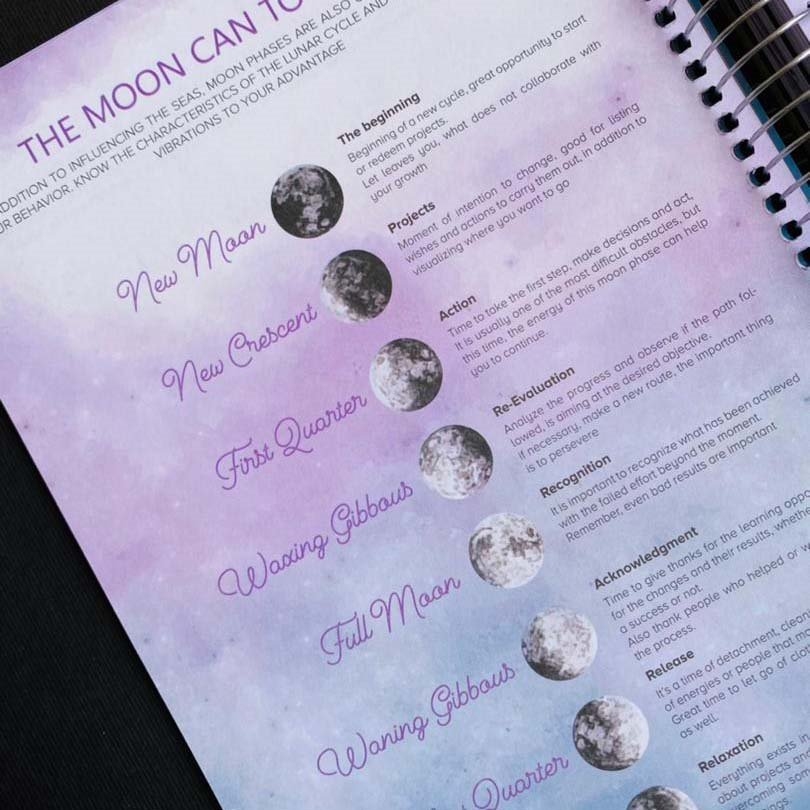 THE MOON CAN TO
ADDITION TO INFLUENCING THE SEAS, MOON PHASES ARE ALSO
OR BEHAVIOR. KNOW THE CHARACTERISTICS OF THE LUNAR CYCLE AND
VIBRATIONS TO YOUR ADVANTAGE
New Moon
The beginning
Beginning of a new cycle, great opportunity to start
or redeem projects.
Let leaves you, what does not collaborate with
your growth
New Crescent
Projects
Moment of intention to change, good for listing
wishes and actions to carry them out, in addition to
visualizing where you want to go
First Quarter
Action
Time to take the first step, make decisions and act,
It is usually one of the most difficult obstacles, but
this time, the energy of this moon phase can help
you to continue.
Waxing Gibbous
Re-Evaluation
Analyze the progress and observe if the path fol-
lowed, is aiming at the desired objective.
if necessary, make a new route, the important thing
is to persevere
Full Moon
Recognition
It is important to recognize what has been achieved
with the failed effort beyond the moment.
Remember, even bad results are important
Waning Gibbous
Acknowledgment
Time to give thanks for the learning
for the changes and their results,
a success or not.
Also thank people who helped or
the process.
Quarter
Release
It's a time of detachment,
of energies or people that
Great time to let go of
as well.
Relaxation
Everything exists in
about projects and